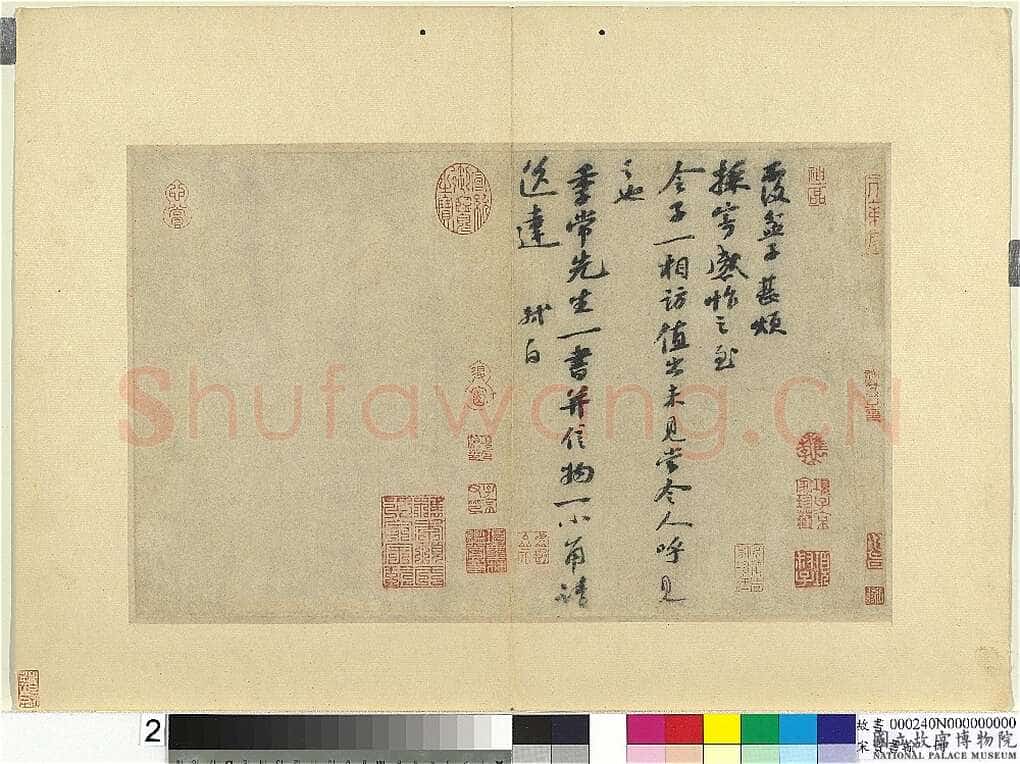 覆盆子甚煩
採寄感怍之至
令子一相訪值出未見當令人呼見
之也
季常先生一書并信物一小角請
送達 軾白
宣統御覽之寶
項子京家珍藏
Shufawang.CN
2
故書 000240N000000000
國立故宮博物院
NATIONAL PALACE MUSEUM